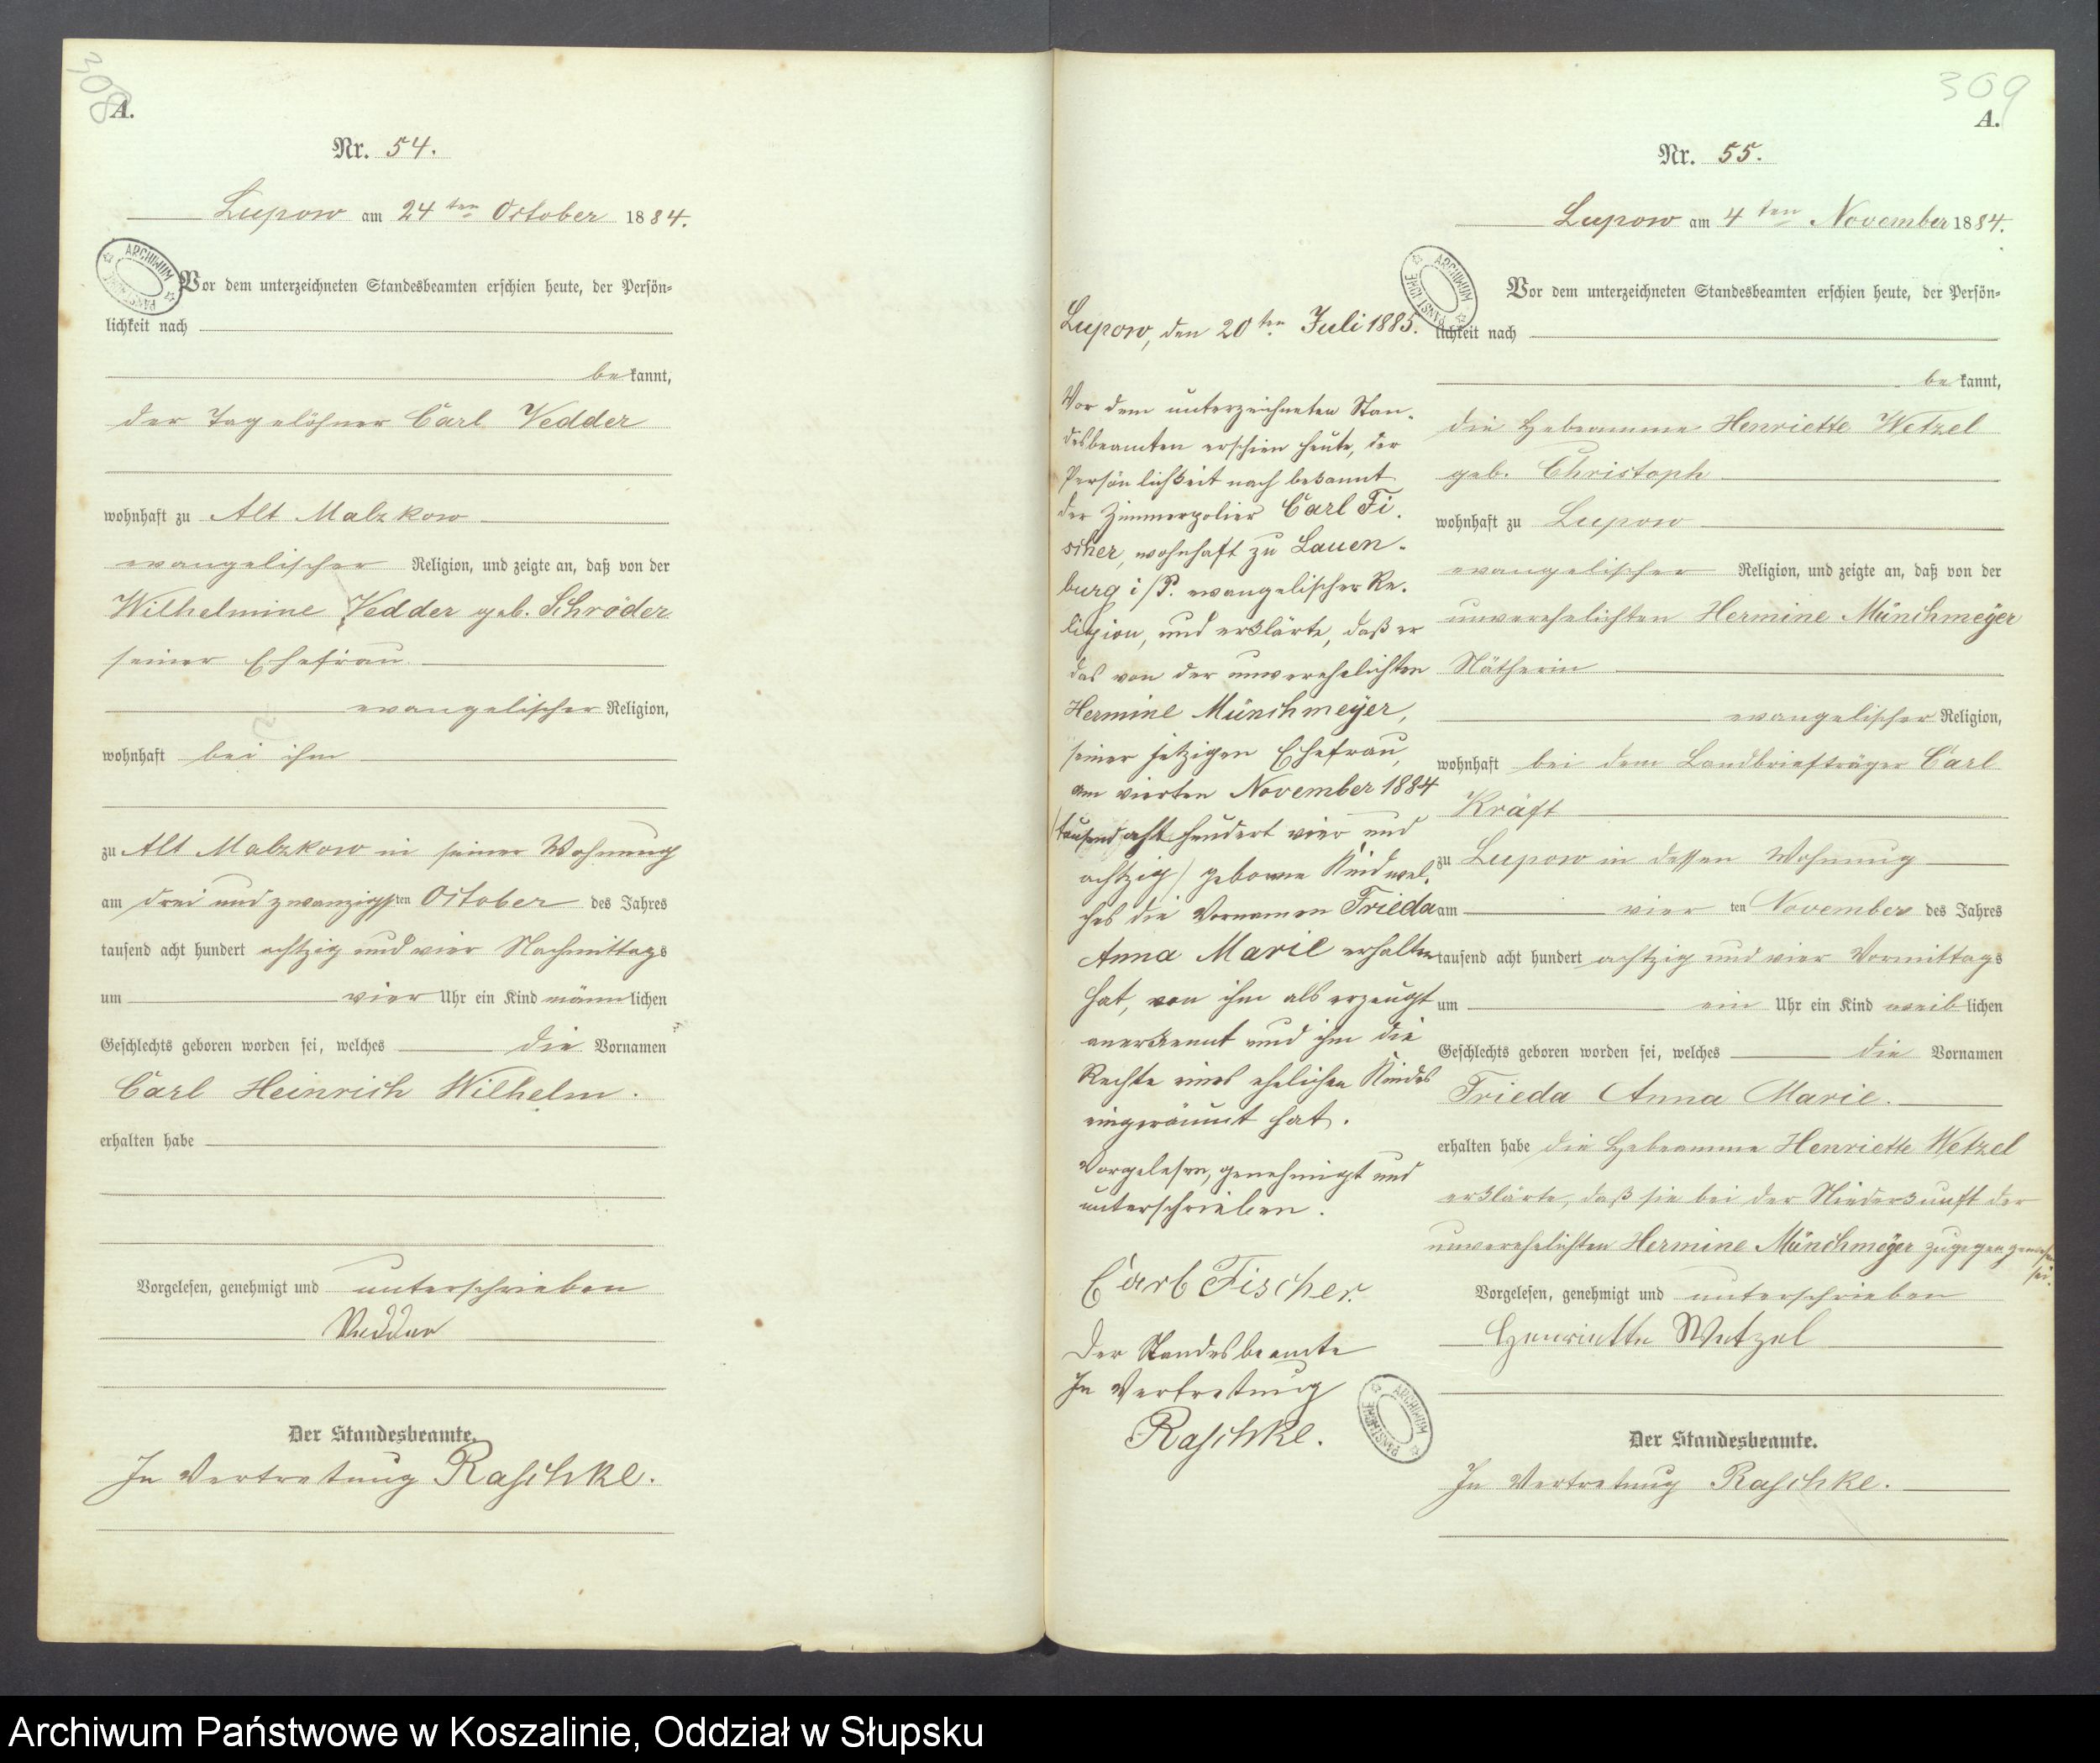 308
A.
Nr. 54.
Lupow am 24ten October 1884.
Vor dem unterzeichneten Standesbeamten erschien heute, der Persön-
lichkeit nach
bekannt,
der Tagelöhner Carl Vedder
wohnhaft zu Alt Malzkow
evangelischer Religion, und zeigte an, daß von der
Wilhelmine Vedder geb. Schröder
seiner Ehefrau
evangelischer Religion,
wohnhaft bei ihm
zu Alt Malzkow in seiner Wohnung
am drei und zwanzigsten October des Jahres
tausend acht hundert achtzig und vier Nachmittags
um vier Uhr ein Kind männlichen
Geschlechts geboren worden sei, welches die Vornamen
Carl Heinrich Wilhelm.
erhalten habe
Vorgelesen, genehmigt und unterschrieben
Vedder
Der Standesbeamte.
In Vertretung Raschke.
ARCHIWUM
309
A.
Nr. 55.
Lupow am 4ten November 1884.
Vor dem unterzeichneten Standesbeamten erschien heute, der Persön-
lichkeit nach
bekannt,
die Hebeamme Henriette Wetzel
geb. Christoph
wohnhaft zu Lupow
evangelischer Religion, und zeigte an, daß von der
unverehelichten Hermine Münchmeÿer
Nätherin
evangelischer Religion,
wohnhaft bei dem Landbriefträger Carl
Kräft
zu Lupow in dessen Wohnung
am vierten November des Jahres
tausend acht hundert achtzig und vier Vormittags
um ein Uhr ein Kind weiblichen
Geschlechts geboren worden sei, welches die Vornamen
Frieda Anna Marie.
erhalten habe die Hebeamme Henriette Wetzel
erklärte, daß sie bei der Niederkunft der
unverehelichten Hermine Münchmeÿer zugegen gewesen
sei.
Vorgelesen, genehmigt und unterschrieben
Henriette Wetzel
Der Standesbeamte.
In Vertretung Raschke.
Lupow, den 20ten Juli 1885.
Vor dem unterzeichneten Stan-
desbeamten erschien heute, der
Persönlichkeit nach bekannt
der Zimmerpolier Carl Fi-
scher, wohnhaft zu Lauen-
burg i/P. evangelischer Re-
ligion, und erklärte, daß er
das von der unverehelichten
Hermine Münchmeÿer,
seiner jetzigen Ehefrau,
am vierten November 1884
(tausend acht hundert vier und
achtzig) geborene Kind wel-
ches die Vornamen Frieda
Anna Marie erhalten
hat, von ihm als erzeugt
anerkennt und ihm die
Rechte eines ehelichen Kindes
eingeräumt hat.
Vorgelesen, genehmigt und
unterschrieben.
Carl Fischer.
Der Standesbeamte
In Vertretung
Raschke.
ARCHIWUM
ARCHIWUM
Archiwum Państwowe w Koszalinie, Oddział w Słupsku